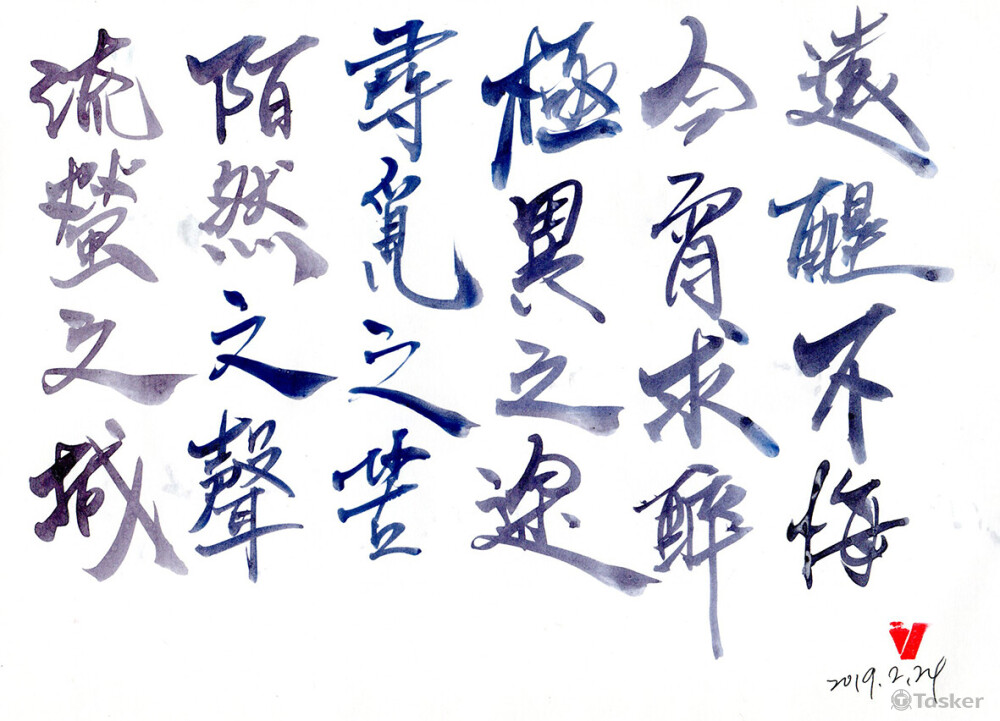 流螢之
陌然之聲
尋覓之
極異之途
今宵求醉
遠醒不悔
V
2019.2.24
Tasker